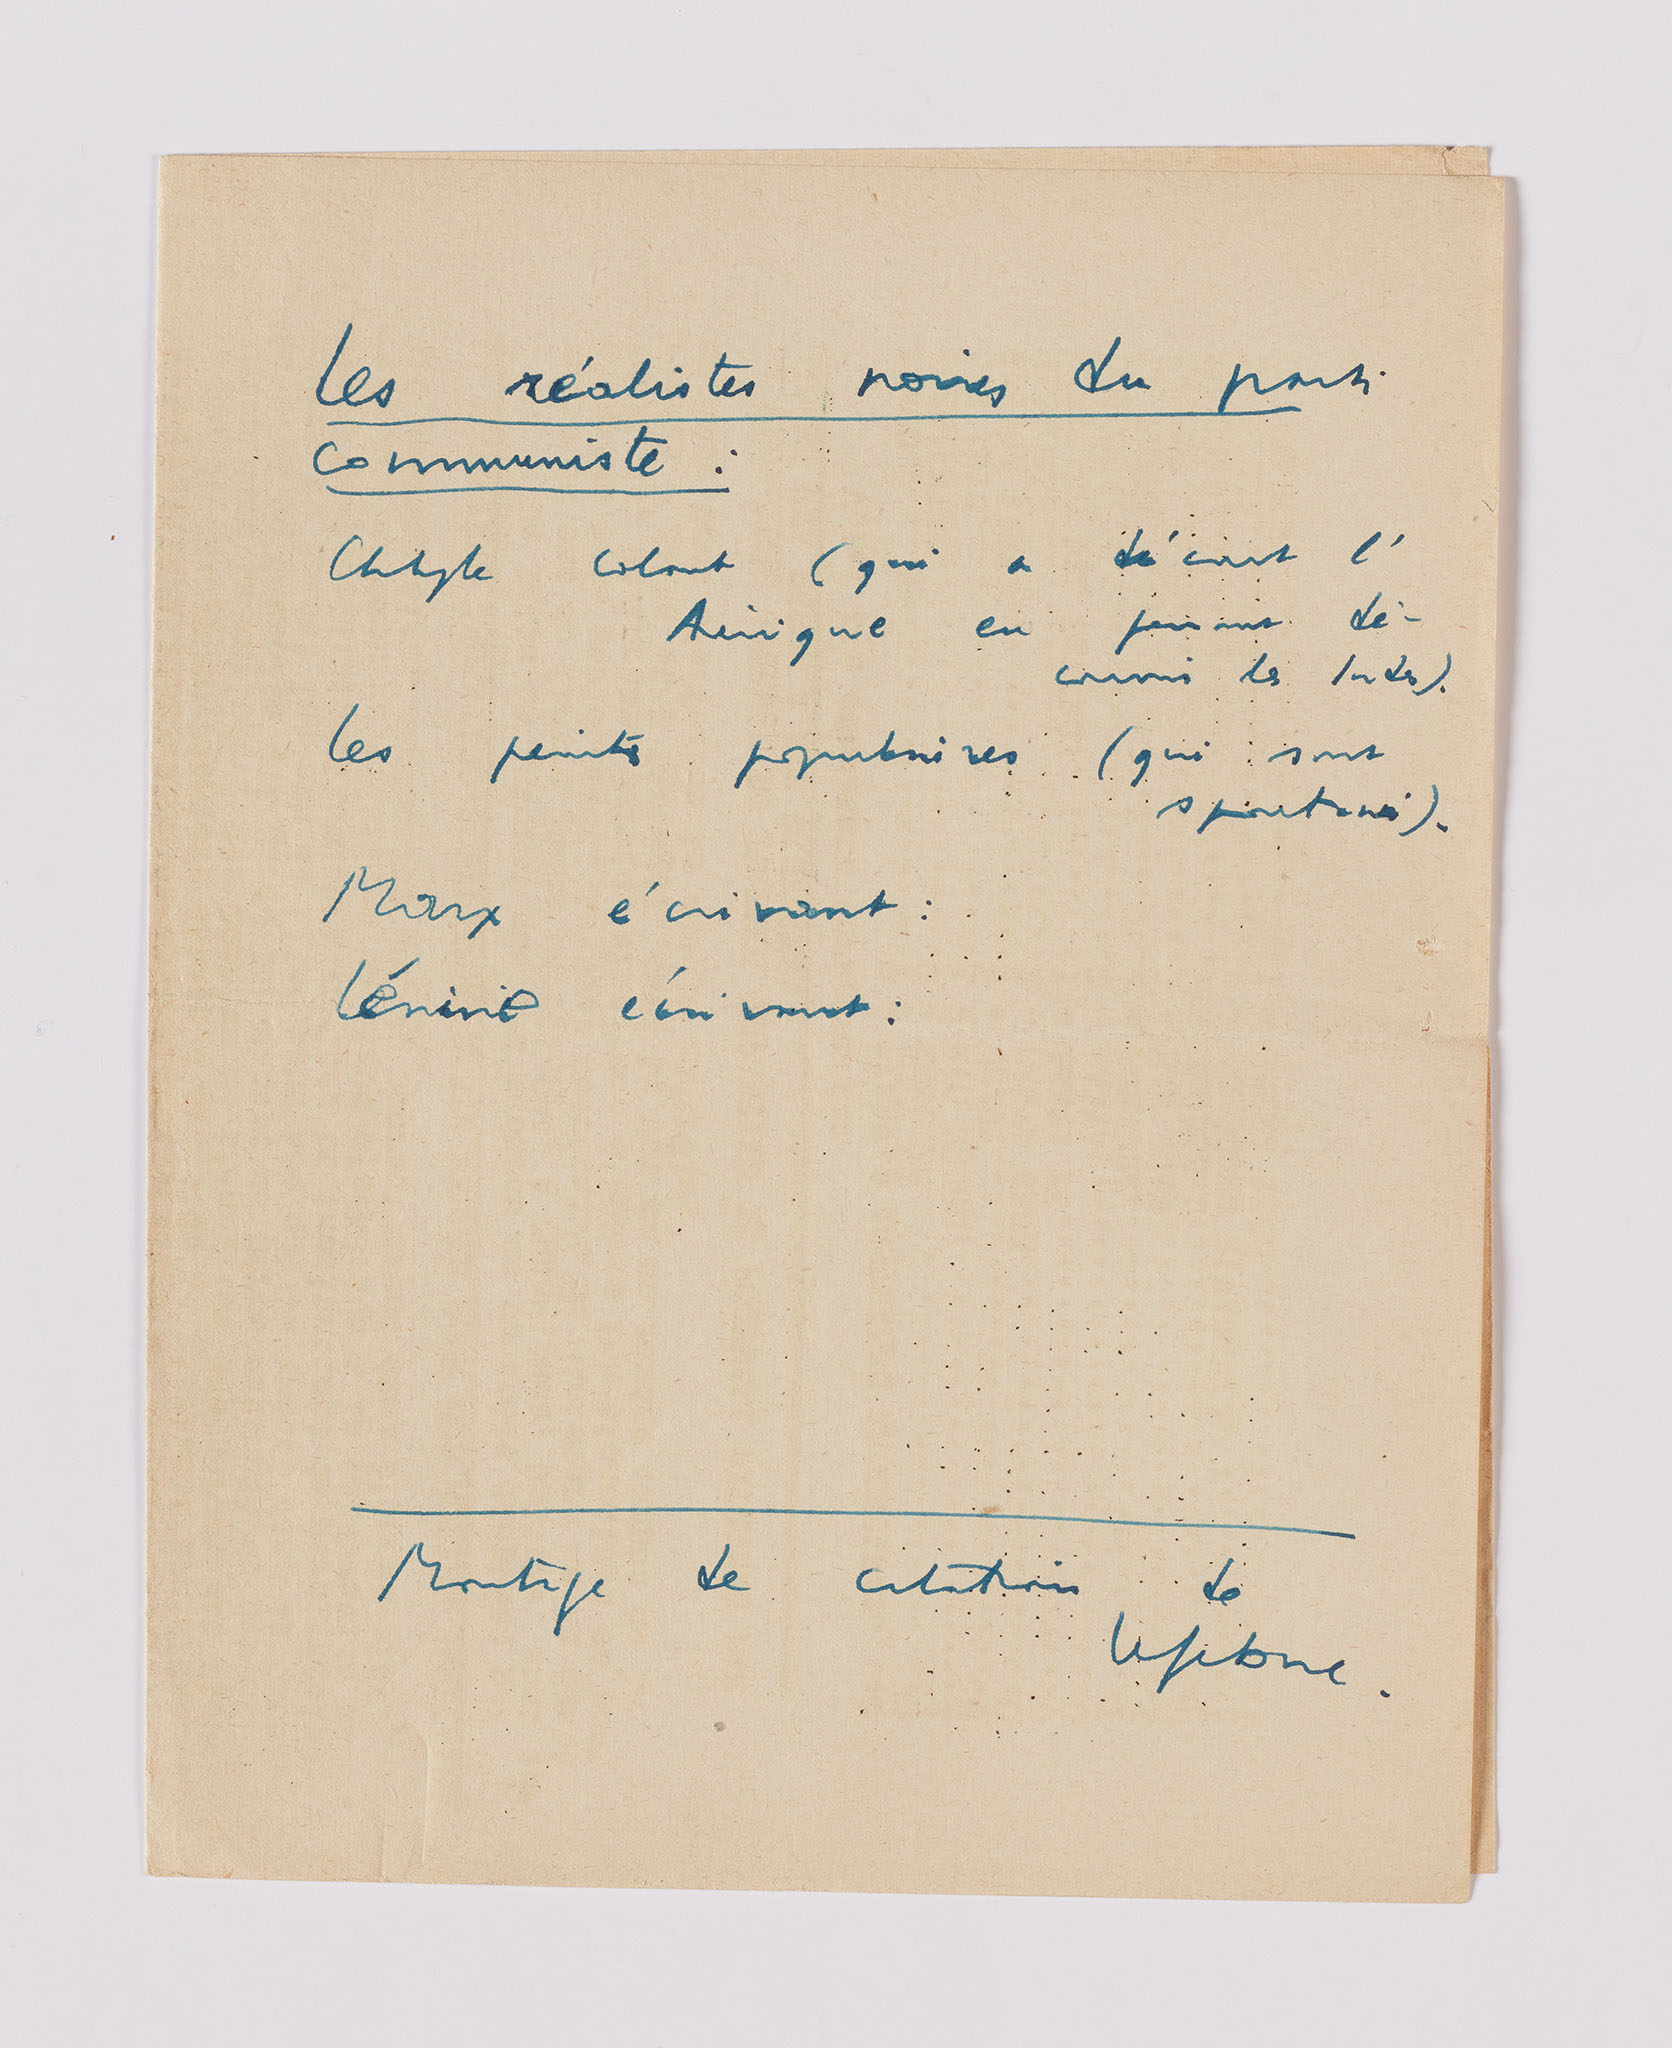 Les réalistes noirs du parti
communiste :
Colomb (qui a découvert l'
Amérique en pensant dé-
couvrir les Indes).
Les peintres populaires (qui sont
spontanés).
Marx écrivant :
Lénine écrivant :
Montage de citations de
Lefebvre.